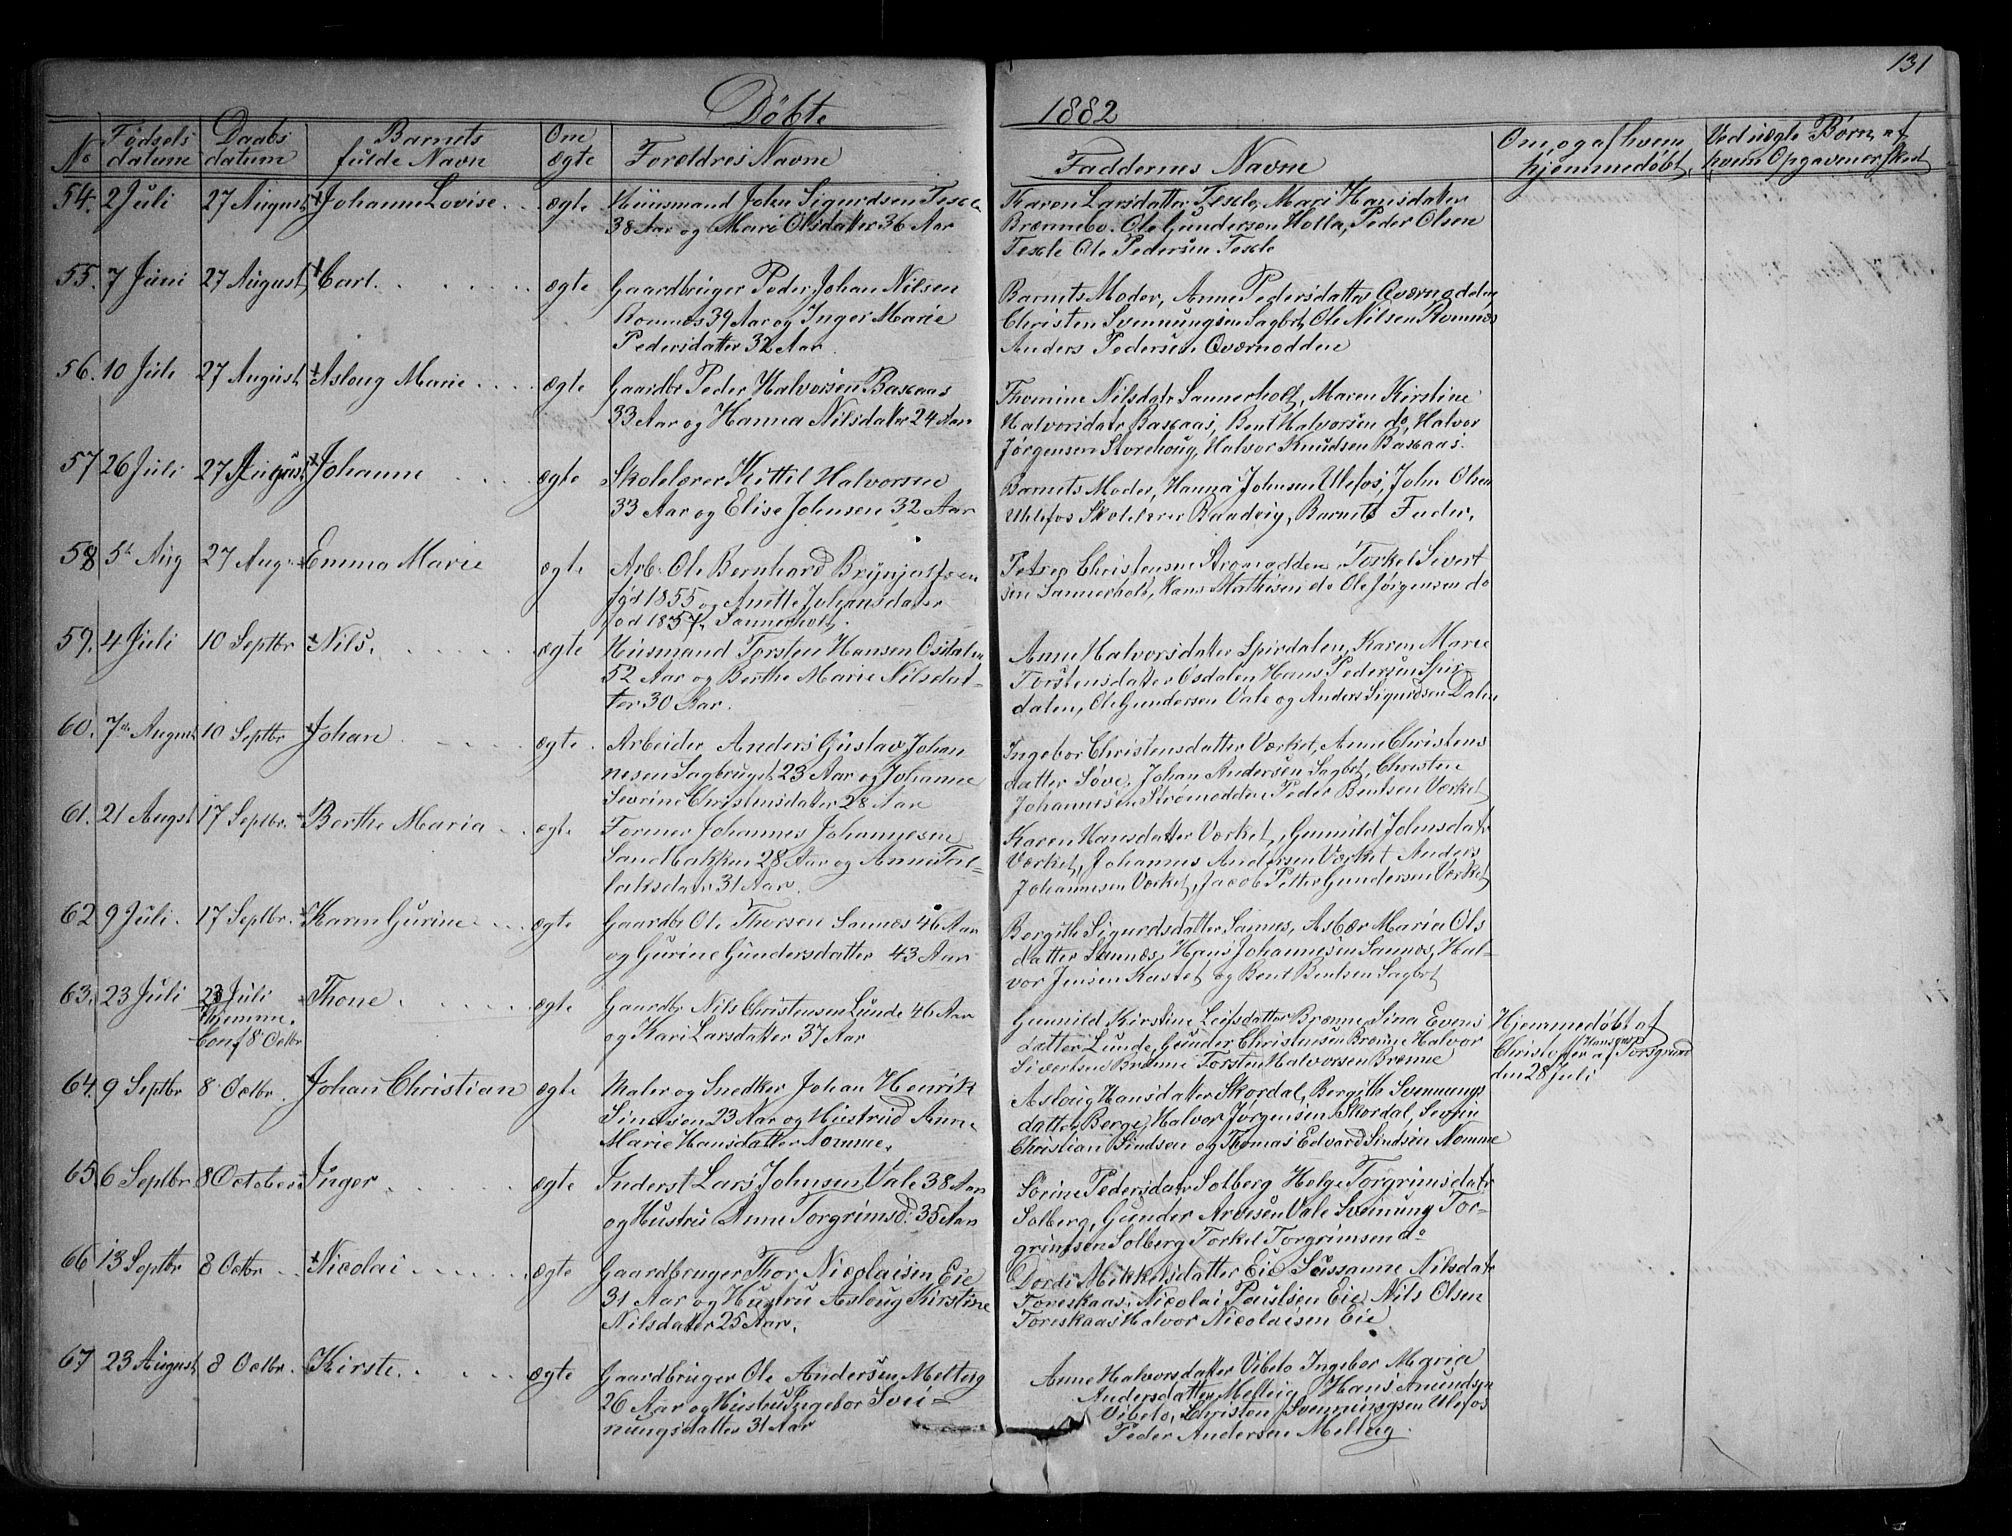 131
Döbte 1882
No
Födsels datum
Daabs datum
Barnets fulde Navn
Om ægte
Forældres Navne
Faddernes Navne
Om, og af hvem hjemmedöbt,
Ved uægte Börn, af hvem Opgaven er sked
54. 2 Juli 27 August Johanne Lovise . . ægte Huusmand John Sigurdsen Texle
38 Aar og Mari Olsdatter 36 Aar
Karen Larsdatter Texle, Mari Hansdatter
Brennebo. Ole Gundersen Holla, Peder Olsen
Texle Ole Pedersen Texle
55. 7 Juni 27 August Carl. . . . . ægte Gaardbruger Peder Johan Nilsen
Romnæs 39 Aar og Inger Marie
Pedersdatter 32 Aar.
Barnets Moder, Anne Pedersdatter Qværnodden
Christen Svennungsen Sagbrt, Ole Nilsen Romnæs
Anders Pedersen Qværnodden
56. 10 Juli 27 August Aslaug Marie . . . . ægte Gaardbr Peder Halvorsen Baxaas
33 Aar og Hanna Nilsdatter 24 Aar
Thomine Nilsdatr Sannerholt, Maren Kirstine
Halvorsdatr Baxaas, Bent Halvorsen do, Halvor
Jørgensen Storehoug, Halvor Knudsen Baxaas.
57 26 Juli 27 August Johanne . . . . ægte Skolelærer Kittil Halvorsen
33 Aar og Elise Johnsen 32 Aar
Barnets Moder, Hanna Johnsen Ulefos, John Olsen
Uhlefos Skolelærer Baadvig, Barnets Fader,
58 5te Aug 27 Aug Emma Marie ægte Arb. Ole Bernhard Brynjulfsen
fød 1855 og Anette Johansdatter
fød 1857, Sannerholt.
Christensen Strømodden, Torkel Sivert
sen Sannerholt, Hans Mathisen do Ole Jørgensen do
59. 4 Juli 10 Septbr Nils. . . . . . ægte Huusmand Torsten Hansen Osdalen
52 Aar og Berthe Marie Nilsdat-
ter 30 Aar.
Anne Halvorsdatter Spirdalen, Karen Marie
Torstensdatter Osdalen Hans Pedersen Spir
dalen, Ole Gundersen Vale og Anders Sigurdsen Dalen
60. 7de August 10 Septbr Johan . . . . ægte . Arbeider Anders Gustav Johan
nesen Sagbruget 23 Aar og Johanne
Severine Christensdatter 28 Aar
Ingebor Christensdatter Værket, Anne Christens
datter Søve, Johan Andersen Sagbrt, Christen
Johannesen Strømodden Peder Bentsen Værket
61. 21 Augst 17 Septbr. Berthe Maria . . ægte Former Johannes Johannesen
Sandbakken 28 Aar og Anne Tal-
laksdatr 31 Aar.
Karen Hansdatter Værket, Gunnild Johnsdatr
Værket, Johannes Andersen Værket Anders
Johannesen Værket, Jacob Petter Gundersen Værket
62 9 Juli. 17 Septbr. Karen Gurine . . . ægte Gaardbr Ole Thorsen Sannes 46 Aar
og Gurine Gundersdatter 43 Aar
Bergith Sigurdsdatter Sannes, Asbør Maria Ols
datter Sannes, Hans Johannesen Sannes, Hal-
vor Jensen Kastet og Bent Bentsen Sagbrt
63. 23 Juli 23 Juli
Hjemme.
conf 8 Octbr
Thone . . . . ægte Gaardbr Nils Christensen Lunde 46 Aar
og Kari Larsdatter 37 Aar
Gunnild Kirstine Leifsdatter Brenne, Sina Evens
datter Lunde, Gunder Christensen Brenne Halvor
Sivertsen Brenne Torsten Halvorsen Brenne
Hjemmedöbt af
Christoffer af Porsgrund
den 28 Juli
64. 9 Septbr 8 Octbr. Johan Christian ægte Maler og Snedker Johan Henrik
Sindsen 23 Aar og Hustrue Anne
Marie Hansdatter Nomme.
Aslaug Hansdatter Skordal, Bergith Svennungs
datter Berge, Halvor Jørgensen Skordal, Severin
Christian Sindsen og Thomas Edvard Sindsen Nomme
65. 6 Septbr 8 October Inger . . . . . ægte Inderst Lars Johnsen Vale 38 Aar
og Hustru Anne Torgrimsd: 35 Aar
Sörine Pedersdatr Solberg Helge Torgrimsdatr
Solberg, Gunder Arvesen Vale Svennung Tor-
grimsen Solberg Torkel Torgrimsen do
66 13 Septbr 8 Octbr . . Nicolai . . . . . . ægte Gaardbruger Thor Nicolaisen Eie
31 Aar og Hustru Aslaug Kirstine
Nilsdatter 25 Aar.
Dordi Mikkelsdatter Eie Susanne Nilsdatr
Toreskaas, Nicolai Paulsen Eie Nils Olsen
Toreskaas Halvor Nicolaisen Eie
67 23 August 8 Octbr. . Kirste. . . . . . ægte Gaardbruger Ole Andersen Melteig
26 Aar og Hustru Ingebor Svei-
nungsdatter 31 Aar
Anne Halvorsdatter Vibeto Ingebor Maria
Andersdatter Melteig Hans Amundsen
Vibeto, Christen Svenningsen Ulefos
Peder Andersen Melteig.